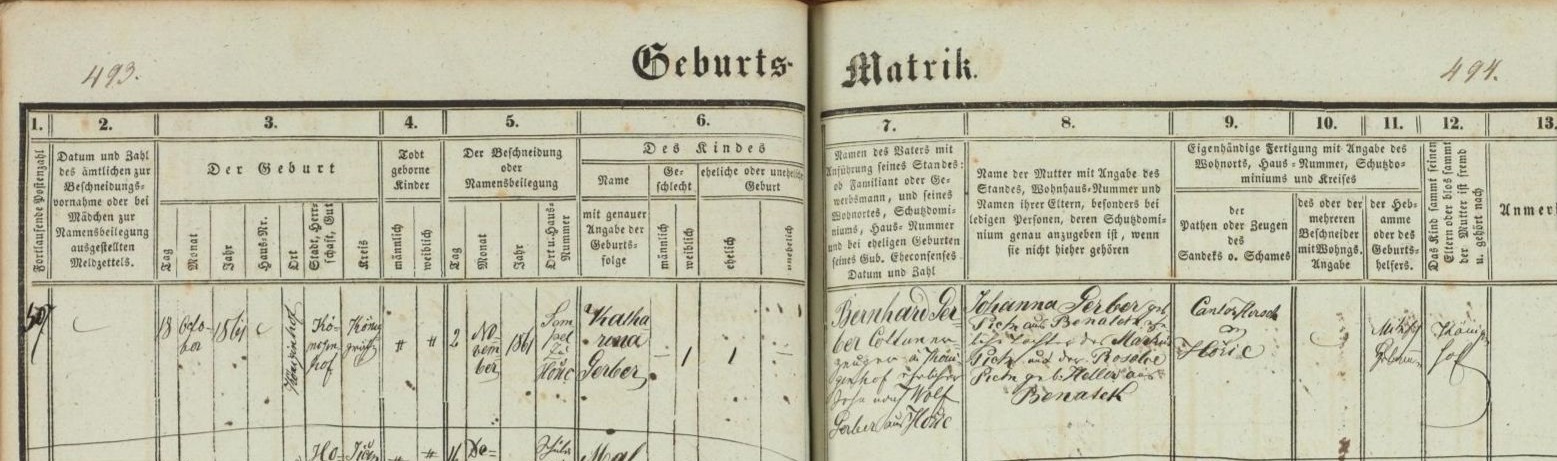 493.
Geburts-
Matrik.
494.
1.
2.
3.
4.
5.
6.
7.
8.
9.
10.
11.
12.
13.
Fortlaufende Postenzahl
Datum und Zahl
des ämtlichen zur
Beschneidungs-
vornahme oder bei
Mädchen zur
Namensbeilegung
ausgestellten
Meldzettels.
Der Geburt
Tag
Monat
Jahr
Haus-Nr.
Ort
Stadt, Herr-
schaft, Gut
Kreis
Todt
geborne
Kinder
männlich
weiblich
Der Beschneidung
oder
Namensbeilegung
Tag
Monat
Jahr
Ort u. Haus-
Nummer
Des Kindes
Name
mit genauer
Angabe der
Geburts-
folge
Ge-
schlecht
männlich
weiblich
eheliche oder uneheliche
Geburt
ehelich
unehelich
Namen des Vaters mit
Anführung seines Standes:
ob Familiant oder Ge-
werbsmann, und seines
Wohnortes, Schutzdomi-
niums, Haus-Nummer
und bei eheligen Geburten
seines Gub. Eheconsenses
Datum und Zahl
Name der Mutter mit Angabe des
Standes, Wohnhaus-Nummer und
Namen ihrer Eltern, besonders bei
ledigen Personen, deren Schutzdomi-
nium genau anzugeben ist, wenn
sie nicht hieher gehören
Eigenhändige Fertigung mit Angabe des
Wohnorts, Haus-Nummer, Schutzdo-
miniums und Kreises
der
Pathen oder Zeugen
des
Sandeks o. Schames
des oder der
mehreren
Beschneider
mit Wohngs.
Angabe
der Heb-
amme
oder des
Geburts-
helfers.
Das Kind sammt seinen
Eltern oder blos sammt
der Mutter ist fremd
u. gehört nach
Anmer
18
Octo-
ber
1861
Königinhof
Kö-
hof
König
grätz
2
No-
vem
ber
1861
Tem
pel
zu
Hořic
Katha
rina
Gerber
1
1
Bernhard Ger-
ber
hof
Sohn Wolf
Gerber aus Hořic
Johanna Gerber geb
aus Benatek
Tochter des
und der Rosalie
geb. Heller aus
Benatek
Cantor
Hořic
König
hof
Ho-
De-